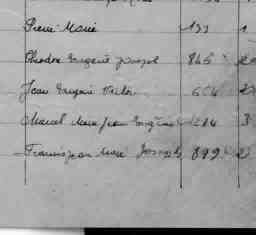 Pierre Marie 133 1
Theodore Eugene Joseph 845
Jean Eugene Victor 604
Marcel Marie Jean Eugène 284 3
Francis Jean Marie Joseph 899